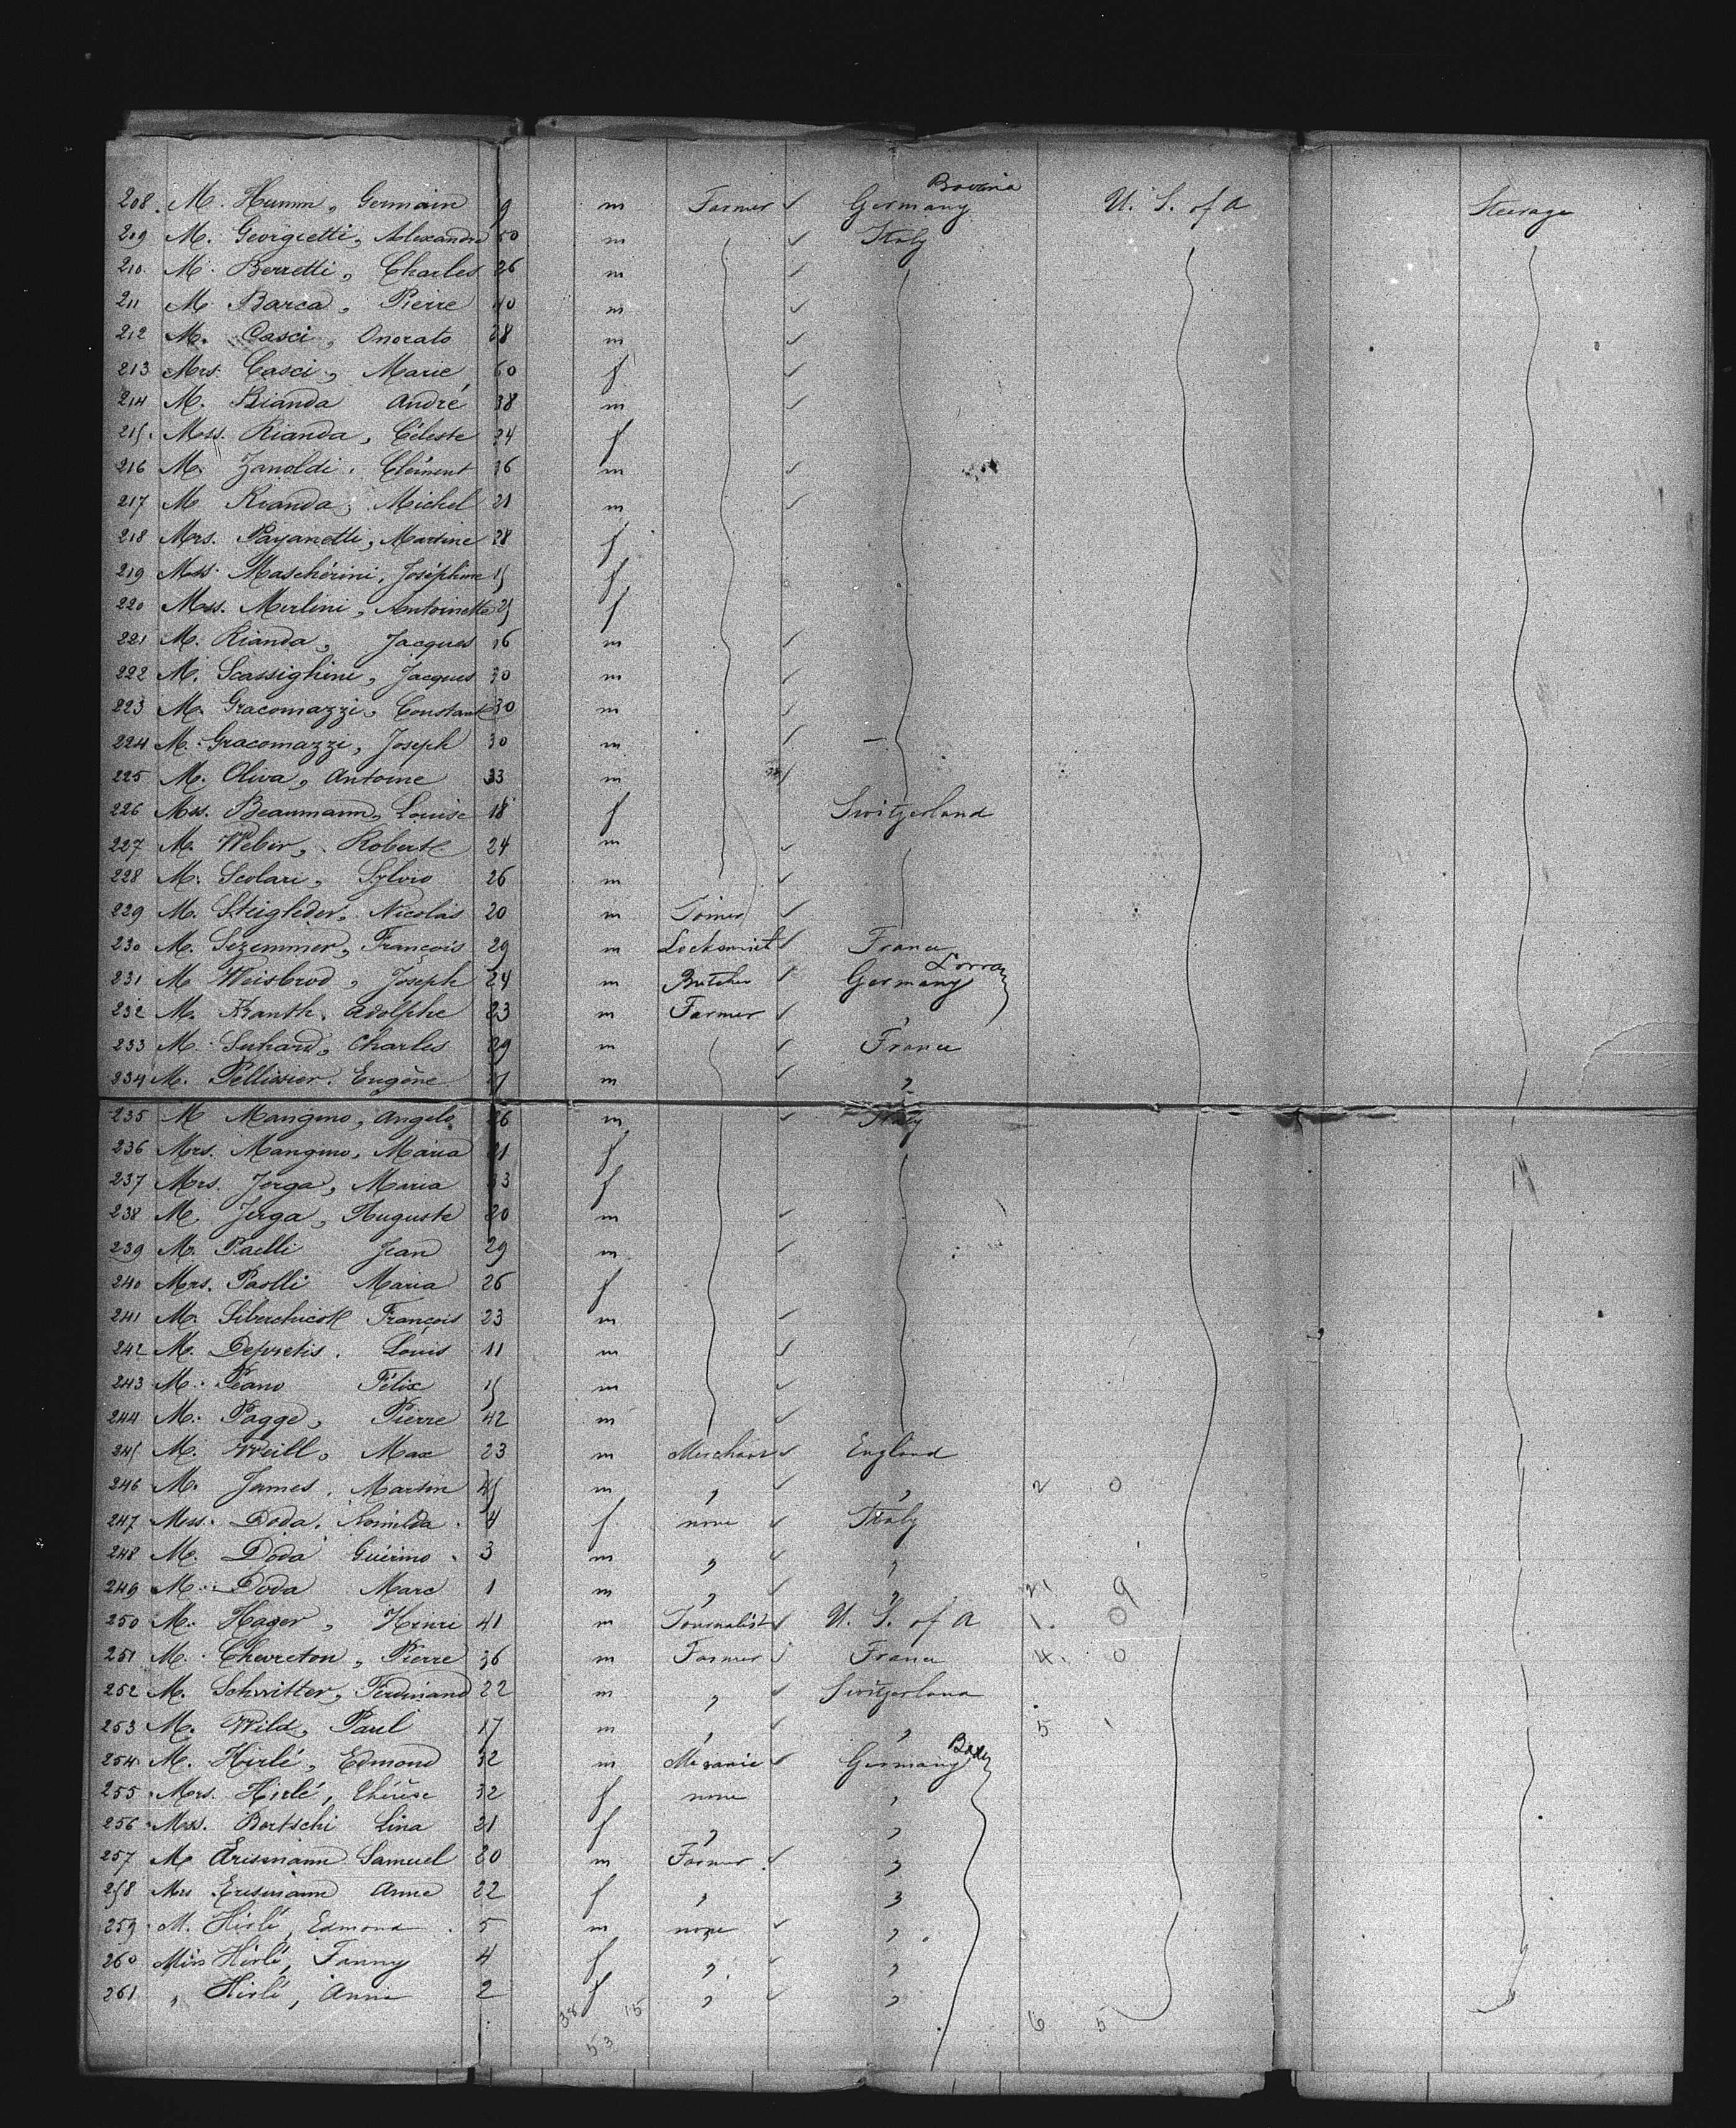 208. M. Humm, Germain 9 m Farmer ✓ Germany Bavaria U. S. of A Steerage
209 M. Georgietti, Alexandre 50 m ✓ Italy
210. M. Berretti, Charles 26 m ✓
211 M. Barca, Pierre 40 m ✓
212 M. Casci, Onorato 28 m ✓
213 Mrs. Casci, Marie 60 f ✓
214 M. Rianda André 38 m ✓
215. Mss. Rianda, Céleste 24 f
216 M. Zanoldi, Clément 16 m ✓
217 M. Rianda, Michel 21 m ✓
218 Mrs. Payanetti, Martine 28 f
219 Mss. Maschérini, Joséphine 15 f
220 Mss. Merlini, Antoinette 25 f
221 M. Rianda, Jacques 16 m ✓
222 M. Scassighini, Jacques 30 m ✓
223 M. Gracomazzi, Constant 30 m ✓
224 M. Gracomazzi, Joseph 30 m ✓
225 M. Oliva, Antoine 33 m ✓
226 Mss. Beaumann, Louise 18 f Switzerland
227 M. Weber, Robert 24 m ✓
228 M. Scolari, Sylvio 26 m ✓
229 M. Steigleder, Nicolas 20 m Joiner ✓
230 M. Sezemmer, François 29 m Locksmith ✓ France
231 M. Weisbrod, Joseph 24 m Butcher ✓ Germany Lorra
232 M. Kranth, Adolphe 23 m Farmer ✓ "
233 M. Suhard, Charles 29 m ✓ France
234 M. Pellissier, Eugène m ✓ "
235 M. Mangino, Angelo 26 m ✓ Italy
236 Mrs. Mangino, Maria 21 f
237 Mrs. Jorga, Maria 33 f
238 M. Jerga, Auguste 20 m ✓
239 M. Paelli Jean 29 m ✓
240 Mrs. Paolli Maria 26 f
241 M. François 23 m ✓
242 M. Depretis. Louis 11 m ✓
243 M. Peano Félix 15 m ✓
244 M. Pagge, Pierre 42 m ✓
245 M. Weill, Max 23 m Merchant ✓ England
246 M. James, Martin 45 m " ✓ " 2 0
247 Mss. Doda, Romilda 4 f none ✓ Italy
248 M. Doda Guérino 3 m " ✓ "
249 M. Doda Marc 1 m " ✓ " 21 9
250 M. Hager, Henri 41 m Journalist ✓ U. S. of A 1. 0
251 M. Chevreton, Pierre 36 m Farmer ✓ France 4. 0
252 M. Schwitter, Ferdinand 22 m " ✓ Switzerland
253 M. Wild, Paul 17 m " ✓ " 5 1
254. M. Hirlé, Edmond 32 m Mecanic ✓ Germany Baden
255. Mrs. Hirlé, Thérèse 32 f none "
256 Mss. Bertschi Lina 21 f " "
257 M. Erismann Samuel 20 m Farmer ✓ "
258 Mrs Erismann Anne 22 f " "
259. M. Hirlé, Edmond 5 m none ✓ "
260 Miss Hirlé, Fanny 4 f " ✓ "
261 " Hirlé, Annie 2 f " ✓ "
38 15 6 5
53